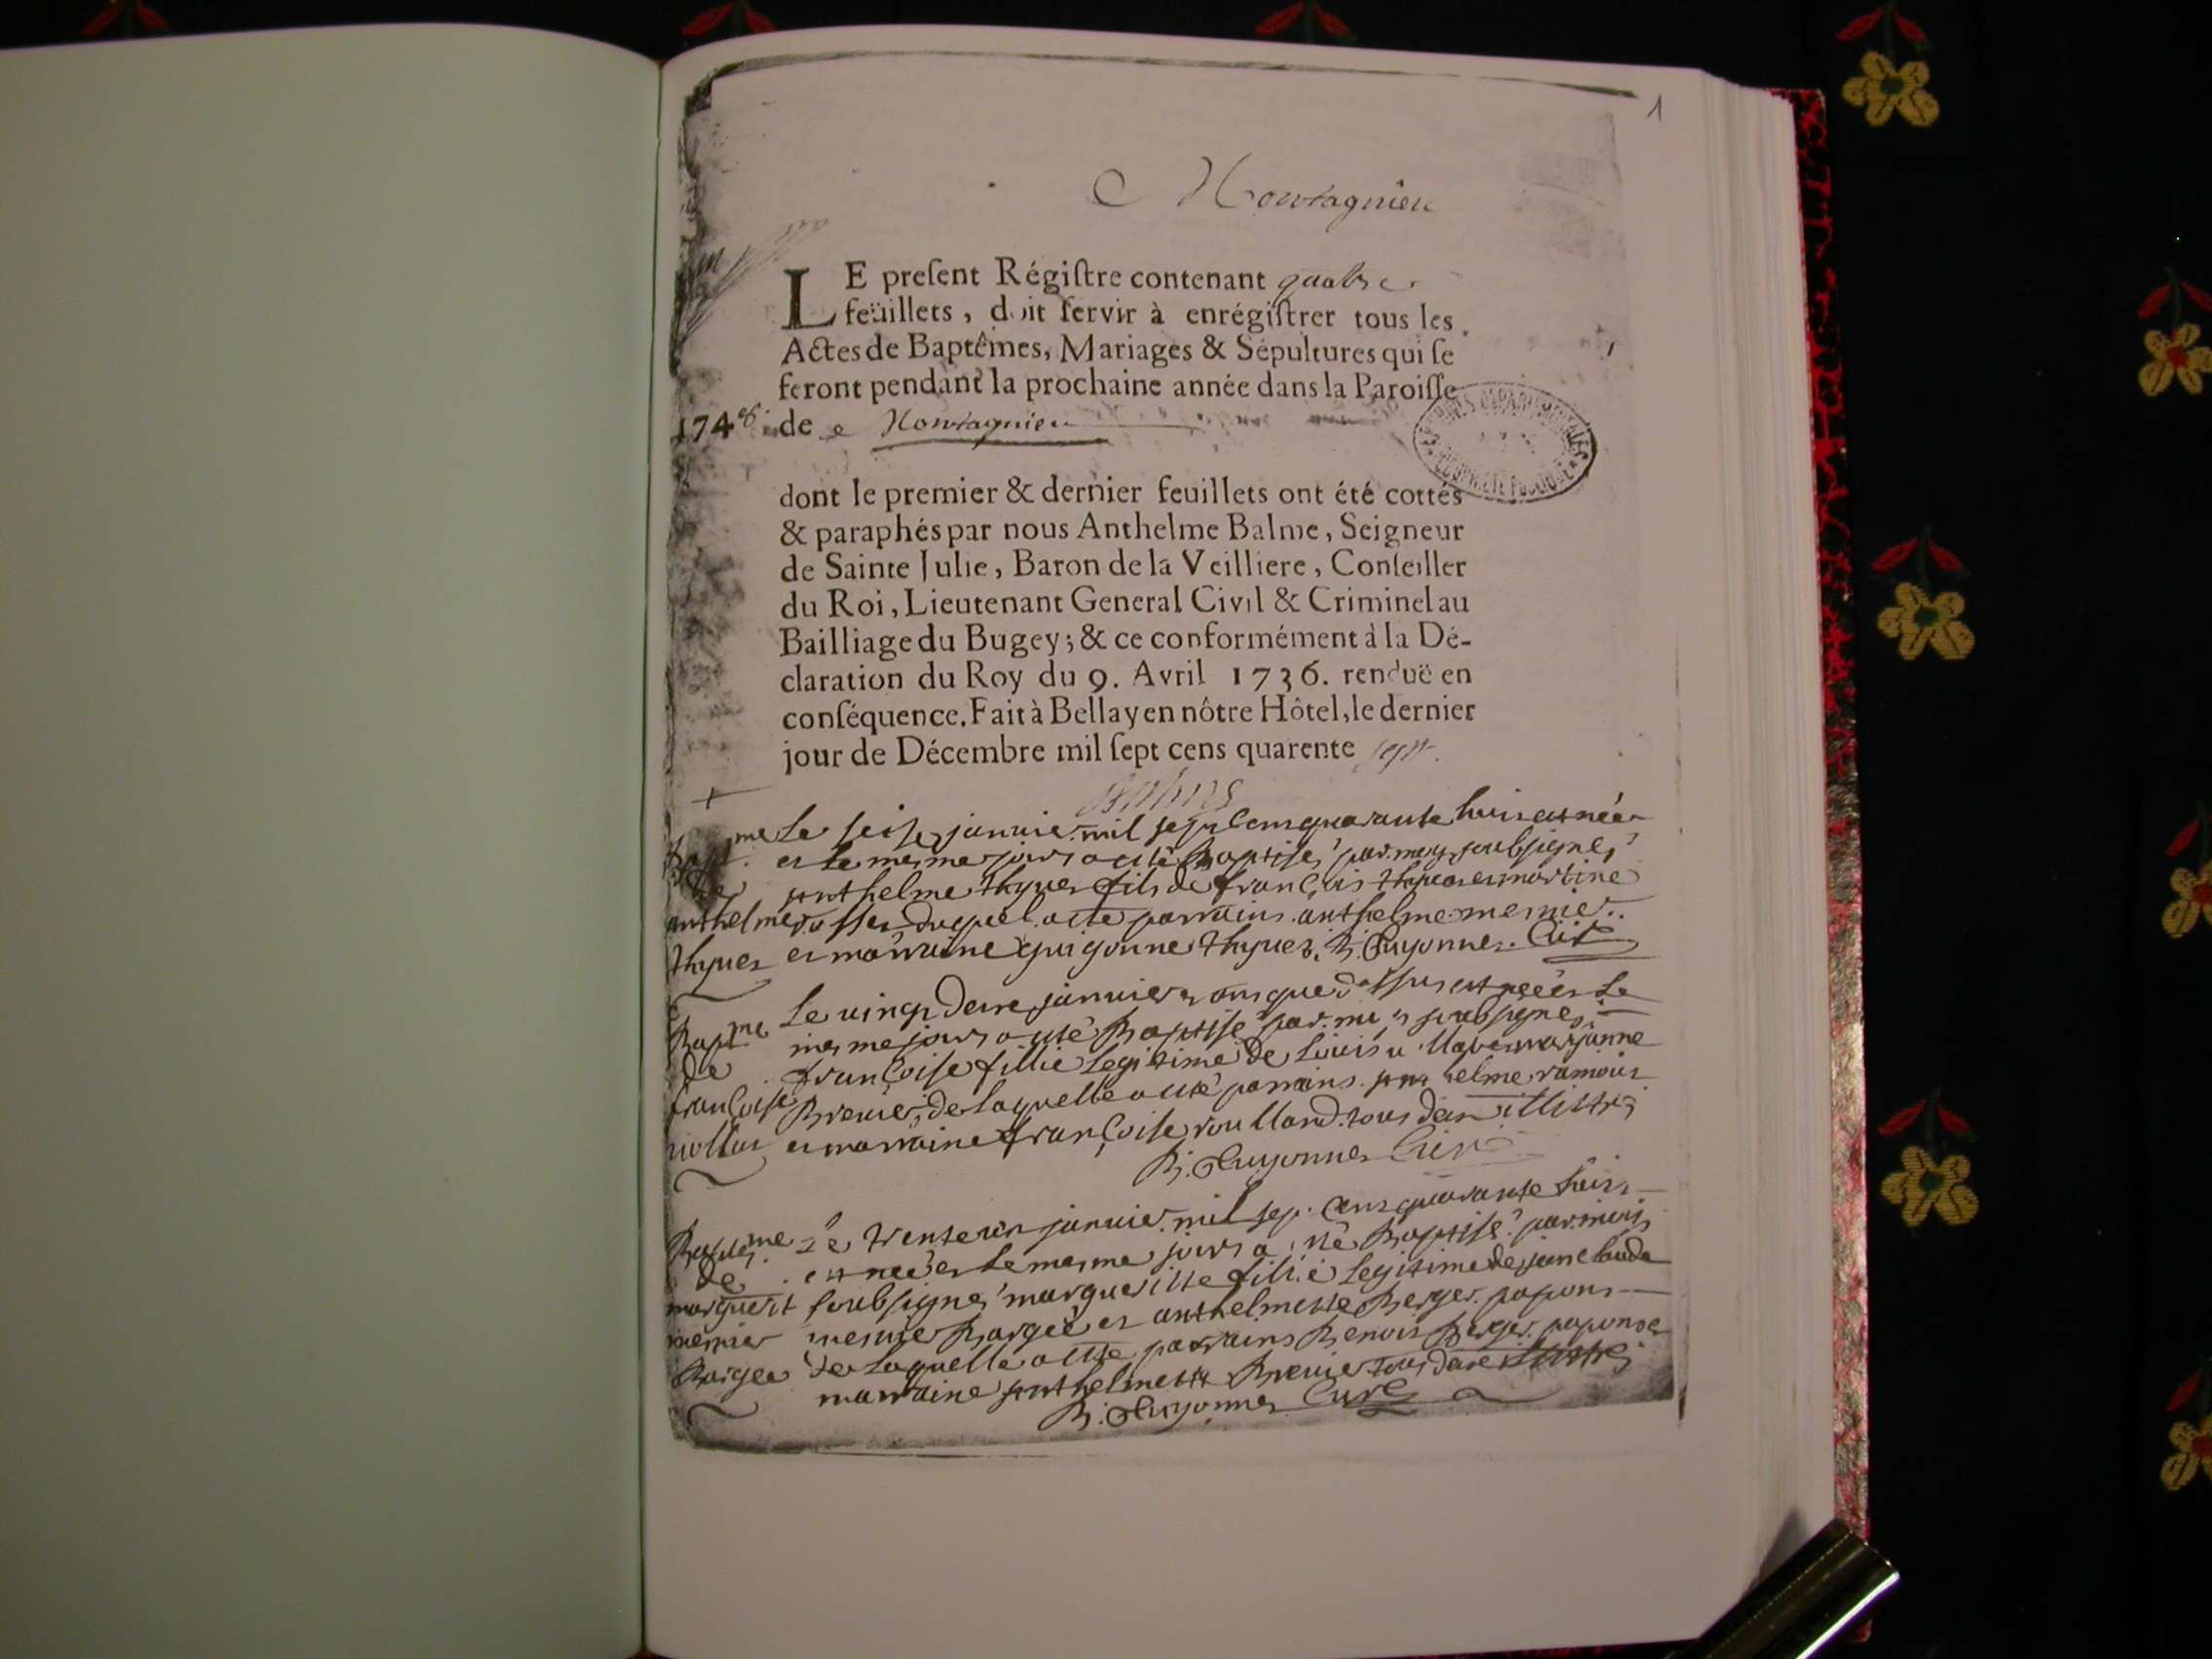 1
Montagnieu
LE preſent Régiſtre contenant quatre
feüillets, doit ſervir à enrégiſtrer tous les
Actes de Baptêmes, Mariages & Sépultures qui ſe
feront pendant la prochaine année dans la Paroiſſe
1748 de Montagnieu
dont le premier & dernier feuillets ont été cottés
& paraphés par nous Anthelme Balme, Seigneur
de Sainte Julie, Baron de la Veilliere, Conſeiller
du Roi, Lieutenant General Civil & Criminel au
Bailliage du Bugey; & ce conformément à la Dé-
claration du Roy du 9. Avril 1736. renduë en
conſéquence. Fait à Bellay en nôtre Hôtel, le dernier
jour de Décembre mil ſept cens quarente sept
Bapt.me Le seise janvier mil sept cens quarante huit est née
et le mesme jour a esté Baptisé par moy soubsigné
de anthelme thyuet fils de françois thyuet et martine
anthelme duquel a esté parrains anthelme mernier
thyuet et marraine guigonne thyuet. B. Guyonnet Curé
Le vingt deux janvier an que dessus est née et le
Bapt.me mesme jour a esté Baptisé par soubsigné
de françoise fillie legitime de Louis et marianne
françoise Brevet, de laquelle a esté parrains anthelme ramoux
viollet et marraine françoise roulland tous deux illistré
B. Guyonnet Curé
Baptes.me Le trente un janvier mil sept cens quarante huit
de est née et le mesme jour a esté Baptisé par moi
marguerit soubsigné margueritte fillie legitime de jean claude
mernier mernier Bargeo et anthelmette Berger papons
Bargeo de laquelle a esté parrains Benoit Berger papons et
marraine anthelmette Brevet tous deux illistré
B. Guyonnet Curé